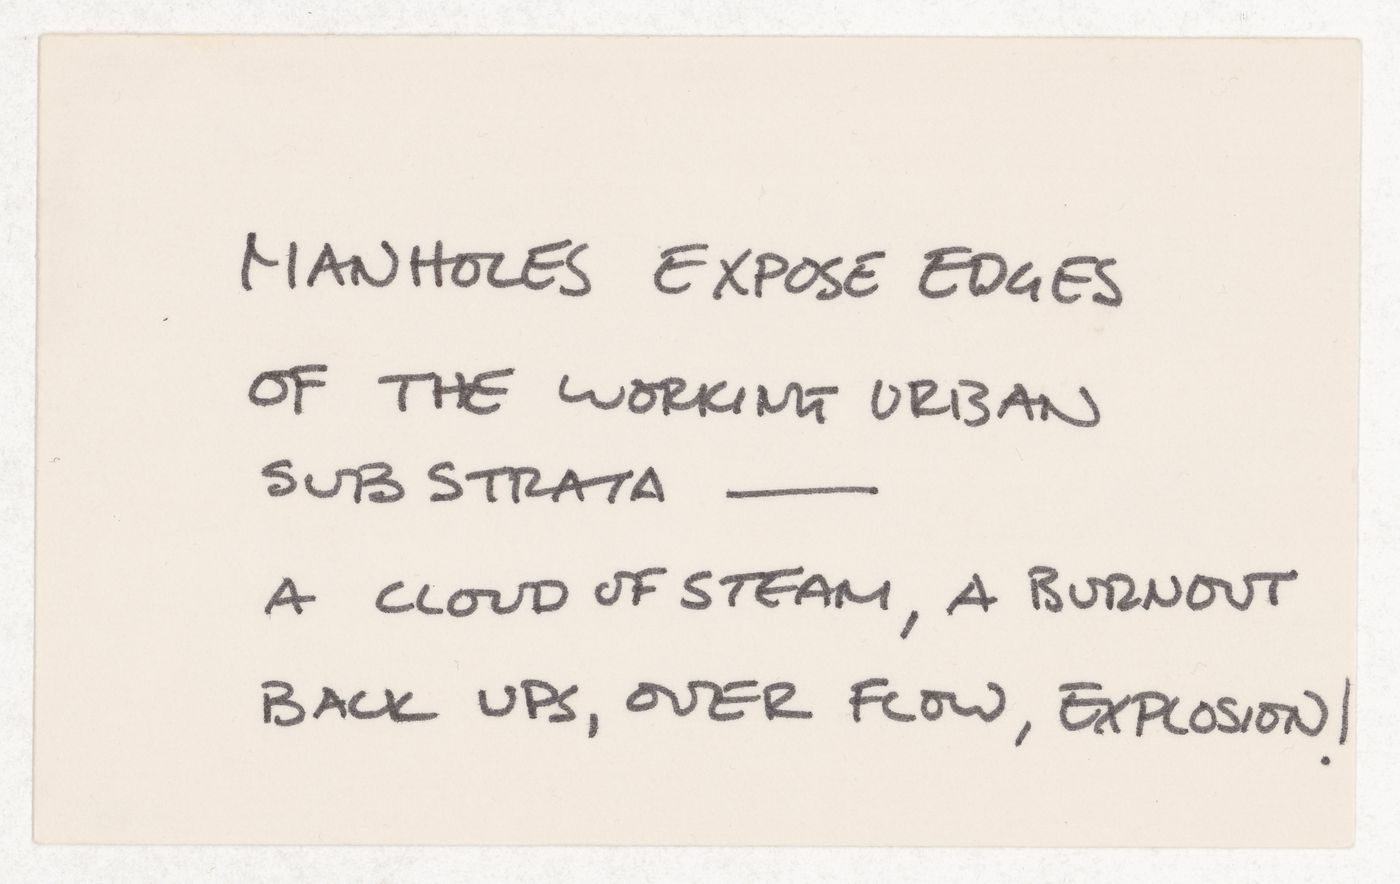 MANHOLES EXPOSE EDGES
OF THE WORKING URBAN
SUBSTRATA —
A CLOUD OF STEAM, A BURNOUT
BACK UPS, OVER FLOW, EXPLOSION!